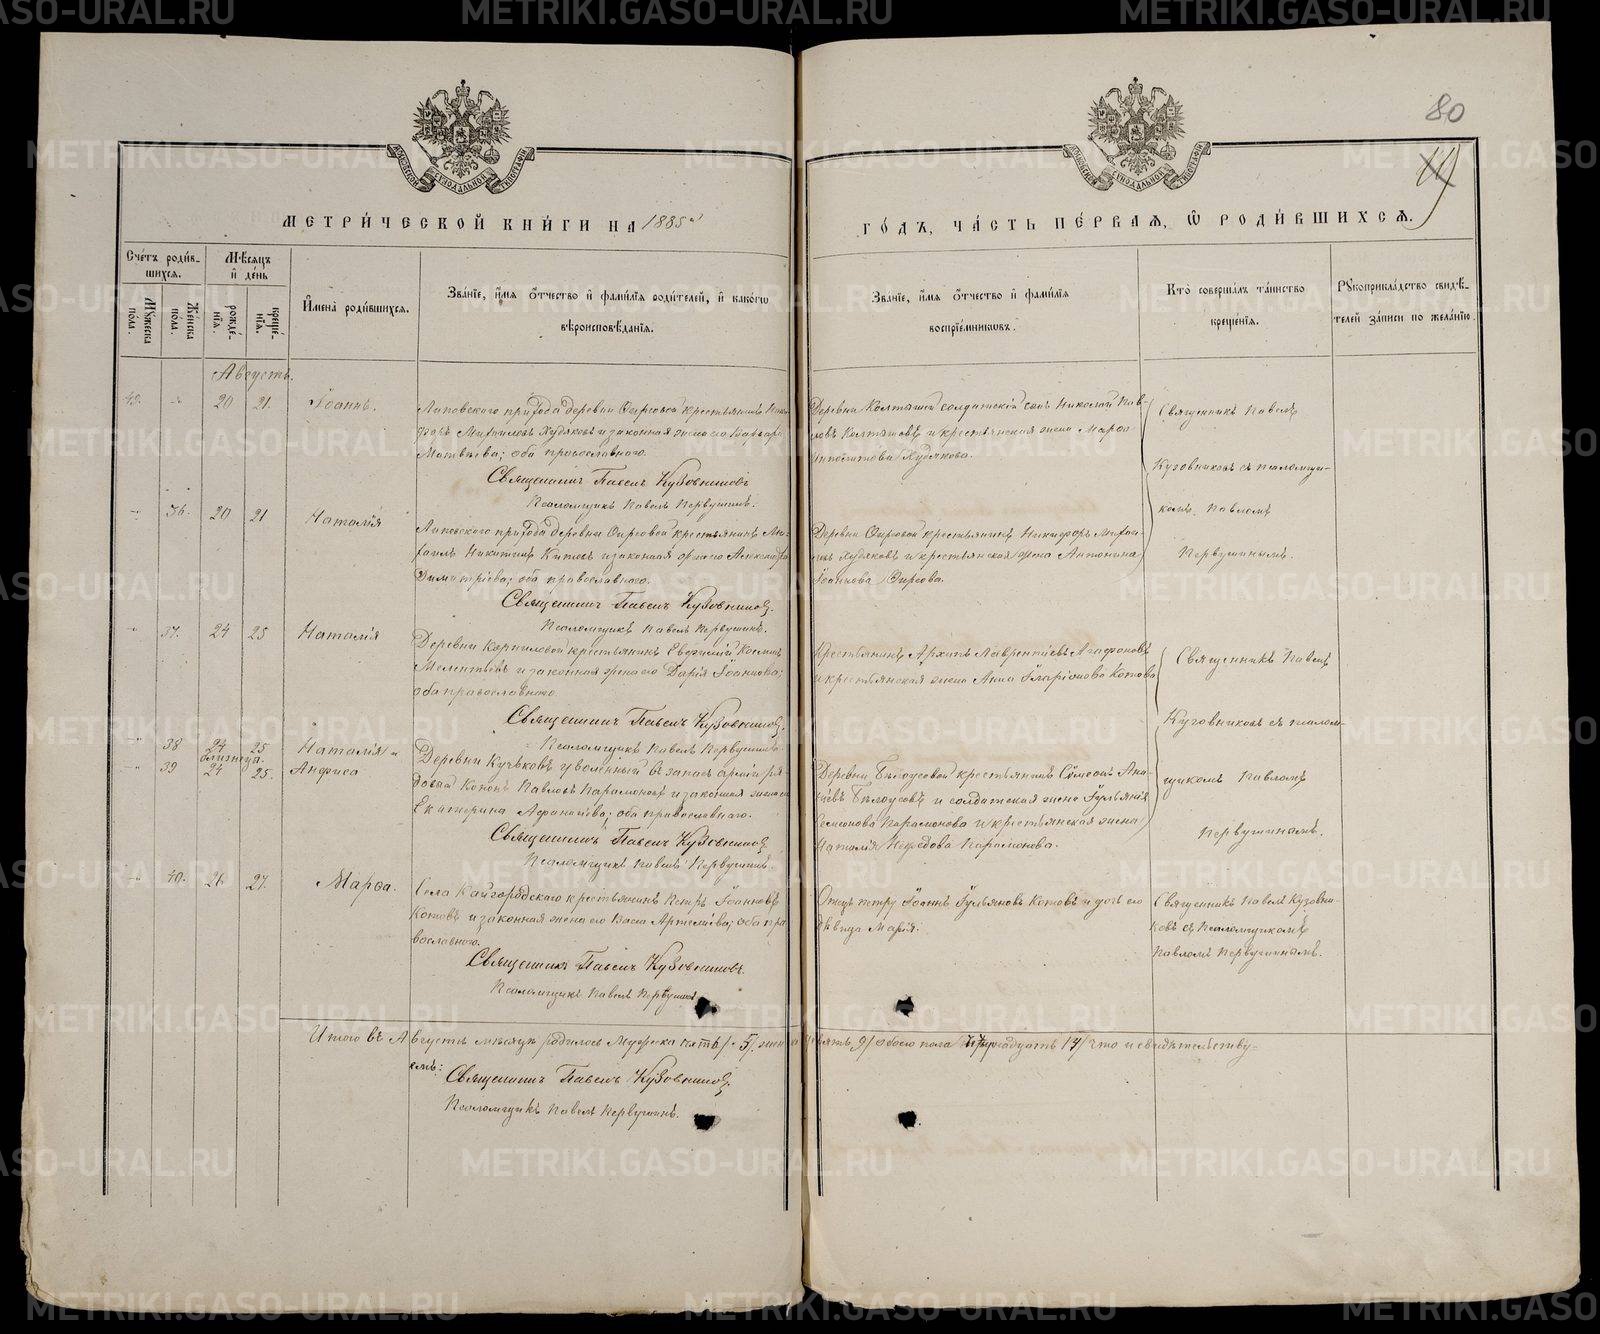 80
МЕТРИ́ЧЕСКОЙ КНИ́ГИ НА 1885й ГО́ДЪ, ЧА́СТЬ ПЕ́РВАЯ, Ѡ РОДИ́ВШИХСЯ.
Сче́тъ роди́в-
шихся.
Мѣ́сяцъ
и҆ де́нь
Му́жеска
по́ла.
Же́нска
по́ла.
рожде́-
нїя.
креще́-
нїя.
И҆мена̀ роди́вшихся.
Зва́нїе, и҆́мя ѻ҆́тчество и҆ фами́лїя роди́телей, и҆ како́гѡ
вѣроисповѣ́данїя.
Зва́нїе, и҆́мя ѻ҆́тчество и҆ фами́лїя
воспрїе́мникѡвъ.
Кто̀ соверша́лъ та́инство
креще́нїя.
Рꙋкоприкла́дство свидѣ́-
телей за́писи по жела́нїю.
Августъ.
20 21. Іоаннъ.
Лаповского прихода деревни Фирсовой крестьянинъ
Михаиловъ Худяковъ и законная жена его Варвара
Матвѣева; оба православнаго.
Священникъ Павелъ Кузовниковъ
Псаломщикъ Павелъ Первушинъ.
Деревни Колташей солдатскій сынъ Николай Пав-
ловъ Колташовъ и крестьянская жена Марѳа
Ипполитова Худякова.
Священникъ Павелъ
Кузовниковъ съ псаломщи-
комъ Павломъ
Первушинымъ.
36. 20 21 Наталія
Лаповского прихода деревни Фирсовой крестьянинъ Ми-
хаилъ Никитинъ Китовъ и законная жена его Александра
Димитріева; оба православнаго.
Священникъ Павелъ Кузовниковъ.
Псаломщикъ Павелъ Первушинъ.
Деревни Фирсовой крестьянинъ Никифоръ Михаи-
ловъ Худяковъ и крестьянская жена Антонина
Іоаннова Фирсова.
37. 24 25 Наталія
Деревни Корниловой крестьянинъ Евфимій Козминъ
Мелентьевъ и законная жена его Дарія Іоаннова;
оба православнаго.
Священникъ Павелъ Кузовниковъ.
Псаломщикъ Павелъ Первушинъ.
Крестьянинъ Архипъ Лаврентіевъ Агафоновъ
и крестьянская жена Анна Иларіонова Котова
Священникъ Павелъ
Кузовниковъ съ псалом-
щикомъ Павломъ
Первушинымъ.
38 24 25 Наталія и
близнеца.
39 24 25. Анфиса
Деревни Кучьковъ уволенный въ запасъ арміи ря-
довой Кононъ Павловъ Парамоновъ и законная жена его
Екатерина Афанасіева; оба православнаго.
Священникъ Павелъ Кузовниковъ
Псаломщикъ Павелъ Первушинъ.
Деревни Бѣлоусовой крестьянинъ Симеонъ Ана-
ньевъ Бѣлоусовъ и солдатская жена Іуліанія
Семенова Парамонова и крестьянская жена
Наталія Нефедова Парамонова.
40. 26 27. Марѳа.
Села Кайгородскаго крестьянинъ Петръ Іоанновъ
Котовъ и законная жена его Васса Артеміева; оба пра
вославнаго.
Священникъ Павелъ Кузовниковъ.
Псаломщикъ Павелъ Первушинъ
Отецъ Петру Іоаннъ Іульяновъ Котовъ и дочь его
дѣвица Марія.
Священникъ Павелъ Кузовни-
ковъ съ Псаломщикомъ
Павломъ Первушинымъ.
Итого въ Августѣ мѣсяцѣ родилось Мужеска пять /5/. женска девять 9/ обоего пола четырнадцать 14/ что и свидѣтельству-
емъ:
Священникъ Павелъ Кузовниковъ.
Псаломщикъ Павелъ Первушинъ.
METRIKI.GASO-URAL.RU